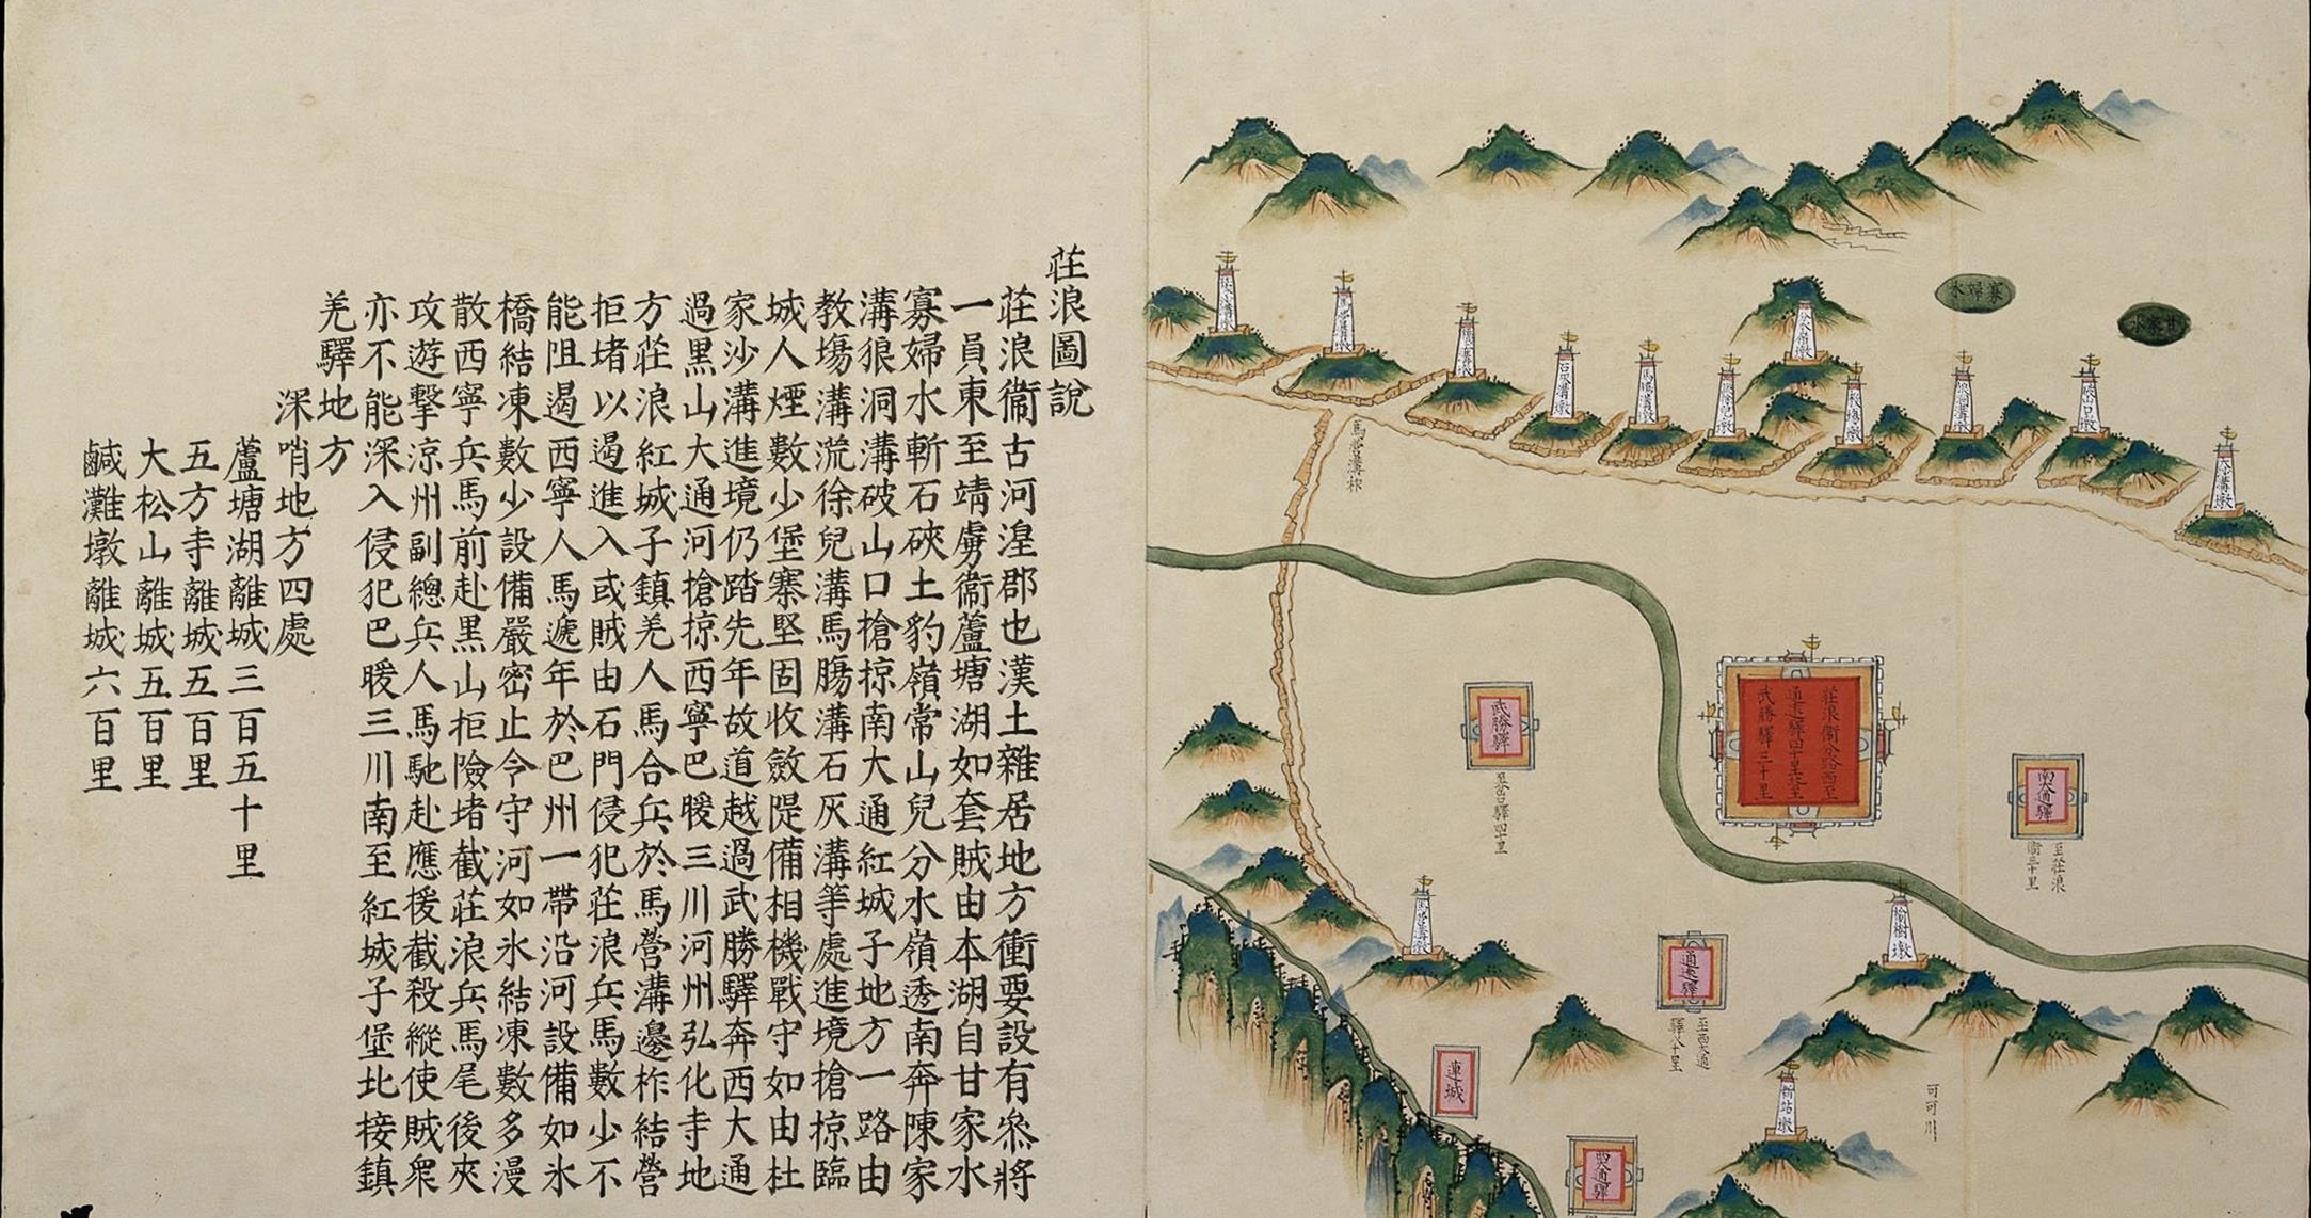 荘浪圖說
荘浪衞古河湟郡也漢土雜居地方衝要設有叅將
一員東至靖虜衞蘆塘湖如套賊由本湖自甘家水
寡婦水斬石硤土豹嶺常山兒分水嶺透南奔陳家
溝狼洞溝破山口搶掠南大通紅城子地方一路由
教塲溝㳘徐兒溝馬膓溝石灰溝等處進境搶掠臨
城人煙數少堡寨堅固收斂隄備相機戰守如由杜
家沙溝進境仍踏先年故道越過武勝驛奔西大通
過黑山大通河搶掠西寧巴暖三川河州弘化寺地
方荘浪紅城子鎮羌人馬合兵於馬營溝邊柞結營
拒堵以遏進入或賊由石門侵犯荘浪兵馬數少不
能阻遏西寧人馬遞年於巴州一帶沿河設備如氷
橋結凍數少設備嚴密止令守河如氷結凍數多漫
散西寧兵馬前赴黑山拒險堵截荘浪兵馬尾後夾
攻遊擊凉州副總兵人馬馳赴應援截殺縱使賊衆
亦不能深入侵犯巴暖三川南至紅城子堡北接鎮
羌驛地方
深哨地方四處
蘆塘湖離城三百五十里
五方寺離城五百里
大松山離城五百里
鹹灘墩離城六百里
寡婦水
分水嶺墩
石灰溝墩
大水溝墩
荘浪衞
武勝驛三十里
武勝驛
南大通驛
至荘浪
衞三十里
榆樹墩
通遠驛
至西大通
驛八十里
連城
新站墩
可可川
西大通驛